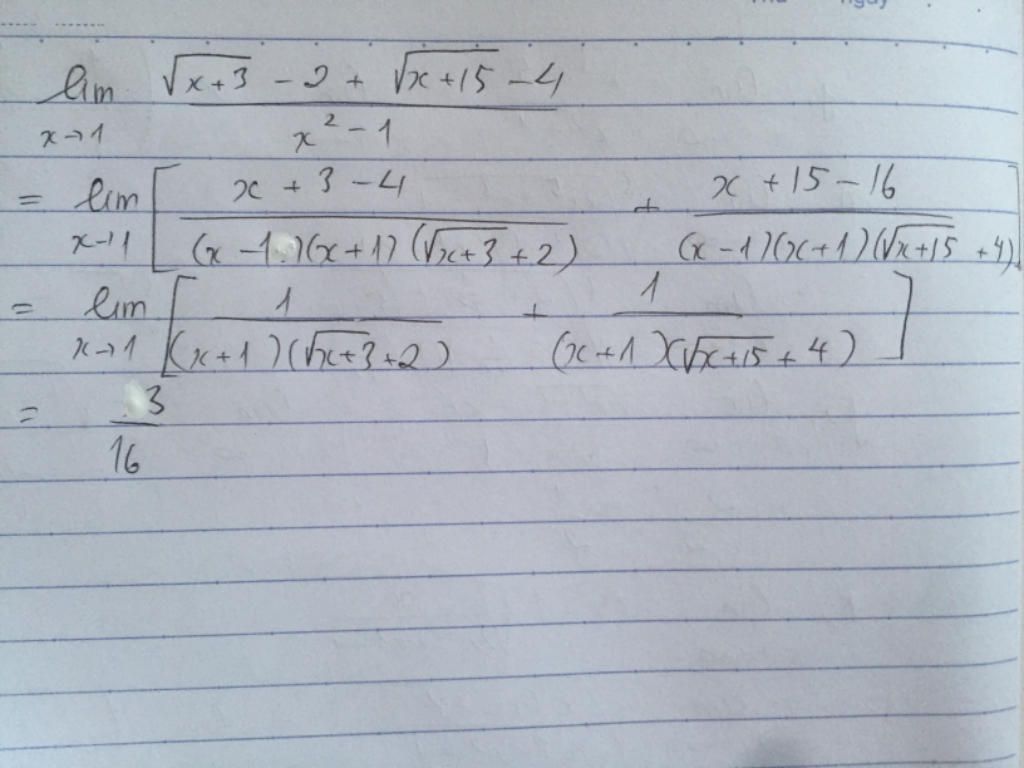 lim_{x→1} (√(x+3) - 2 + √(x+15) - 4) / (x² - 1)
= lim_{x→1} [ (x + 3 - 4) / ((x - 1)(x + 1)(√(x+3) + 2)) + (x + 15 - 16) / ((x - 1)(x + 1)(√(x+15) + 4)) ]
= lim_{x→1} [ 1 / ((x + 1)(√(x+3) + 2)) + 1 / ((x + 1)(√(x+15) + 4)) ]
= 3/16